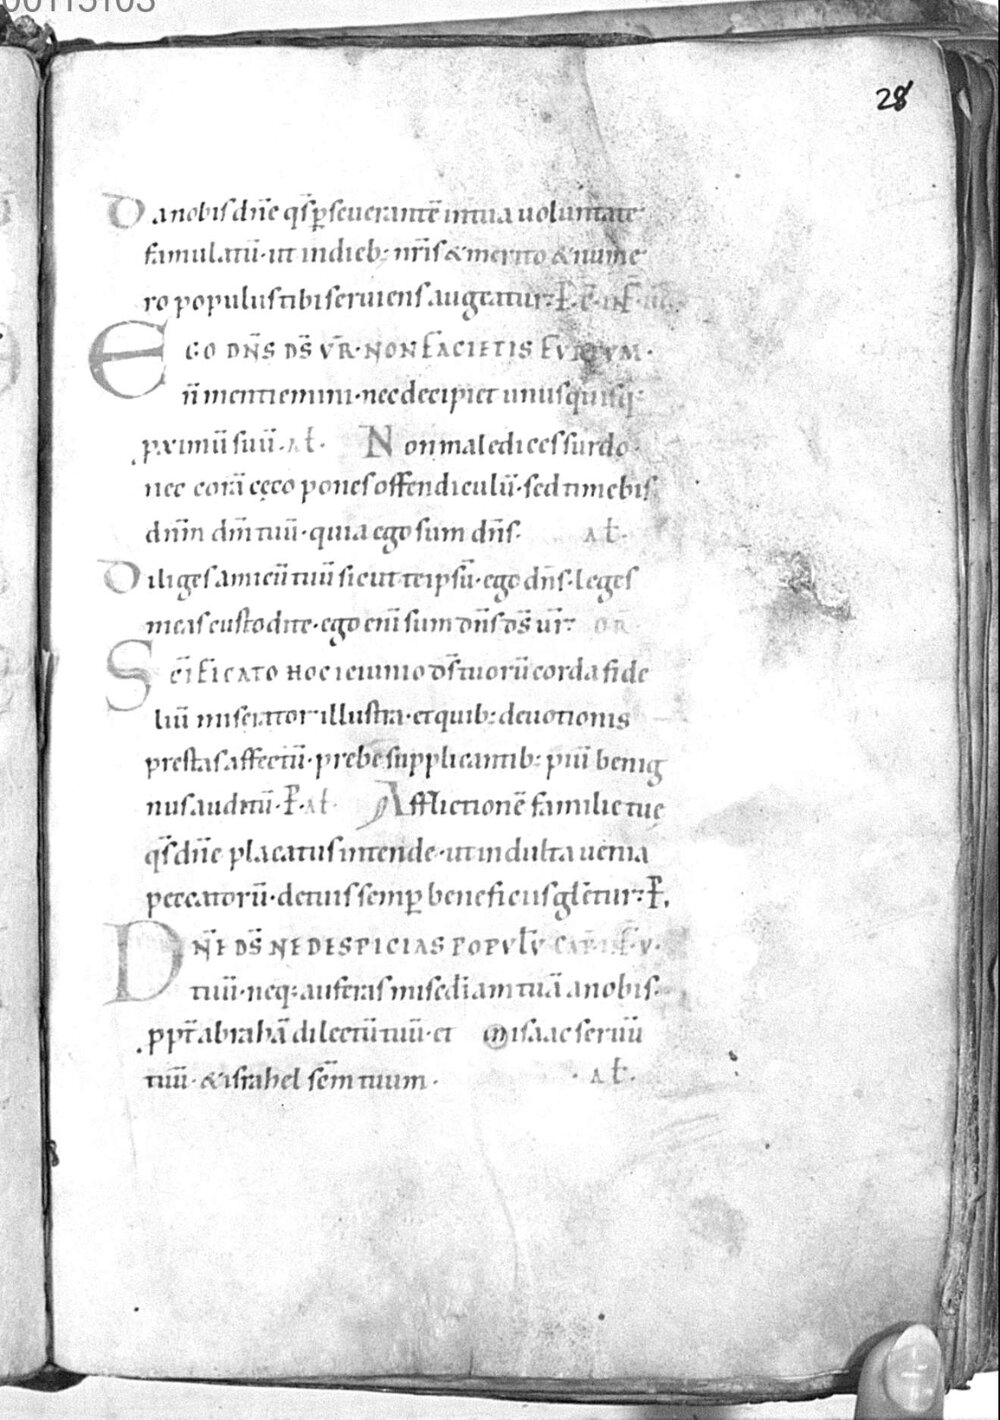 00113103
28
Da nobis dn̄e qs̄ ꝑseuerantē in tua uoluntate
famulatū · ut in dieb: nr̄is & merito & nume
ro populus tibi seruiens augeatur: P̄. F̄. IN F̄.
EGO DN̄S DS̄ VR̄ · NON FACIETIS FVRTVM ·
n̄ mentiemini · nec decipiet unusquisq:
ꝓximū suū · Al̄. Non maledices surdo
nec corā cęco pones offendiculū · sed timebis
dn̄m dm̄ tuū · quia ego sum dn̄s. Al̄.
Diliges amicū tuū sicut teipsū · ego dn̄s · leges
meas custodite · ego eni̅ sum dn̄s ds̄ ur̄: OR̄
Sc̄IFICATO HOC ieiunio ds̄ tuorū corda fide
liū miserator illustra · et quib: deuotionis
prestas affectū · prebe supplicantib: piū benig
nus auditū · P̄. Al̄. Afflictionē familie tuę
qs̄ dn̄e placatus intende · ut indulta uenia
peccatorū · de tuis semꝑ beneficiis glētur: P̄.
DN̄E DS̄ NE DESPICIAS POPVLV̄
tuū · neq: auferas misc̄diam tuā a nobis.
ꝓpt̄ abrahā dilectū tuū · et isaac seruū
tuū · & israhel sc̄m tuum · Al̄.